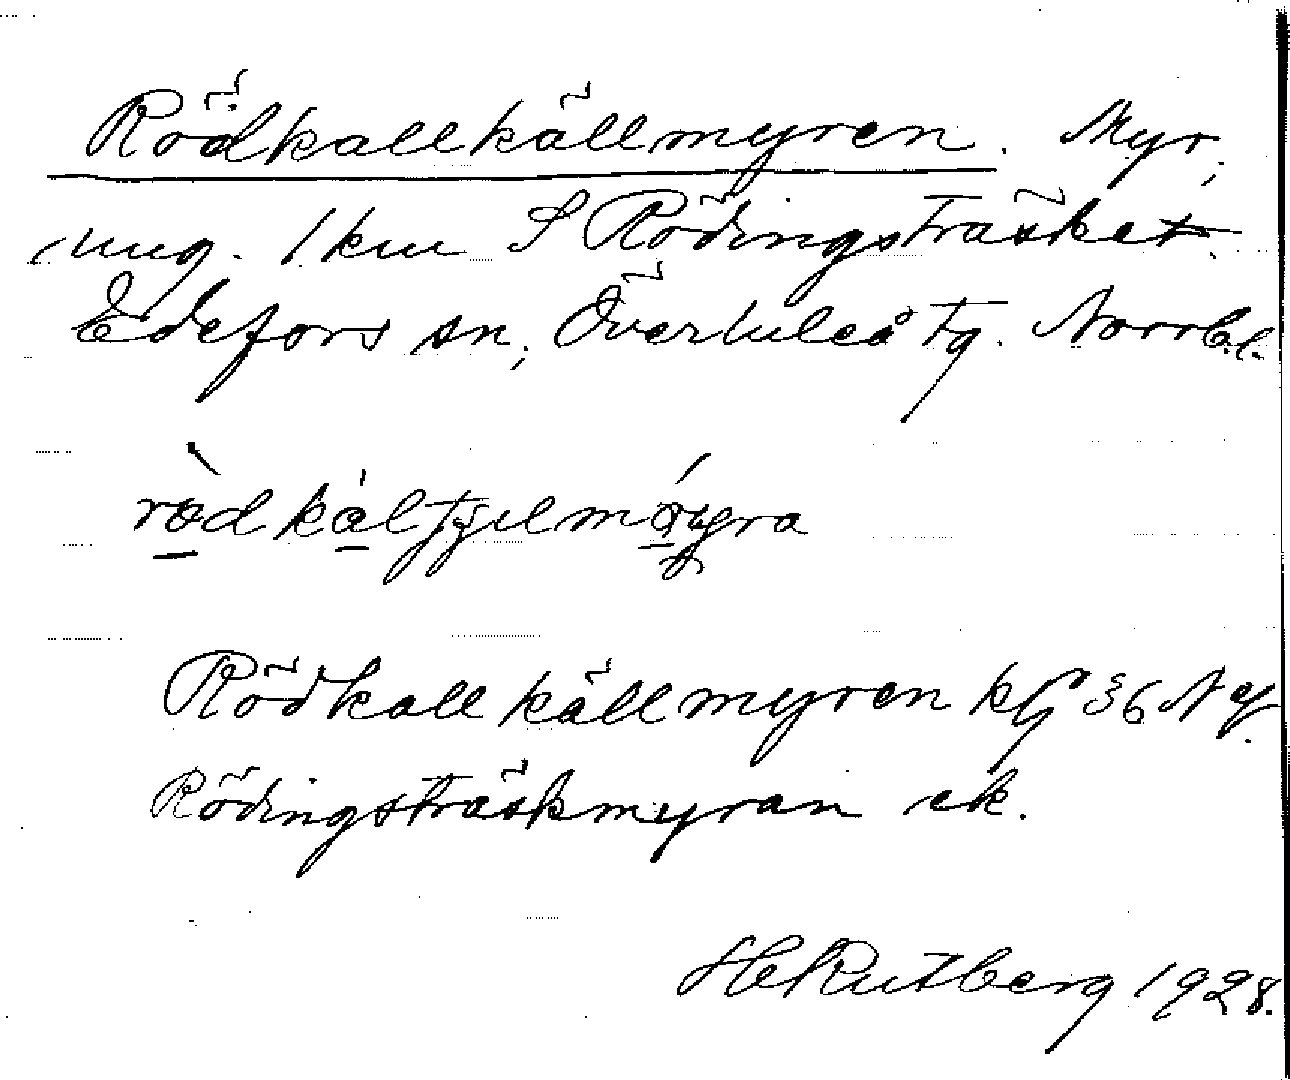 Rödkallkällmyren. Myr,
ung. 1 km S Rödingsträsket.
Edefors sn, Överluleå tg. Norrb.l.
rødkåltjelmyra
Rödkallkällmyren kfj §6 N af
Rödingsträskmyran ek.
Rutberg 1928.